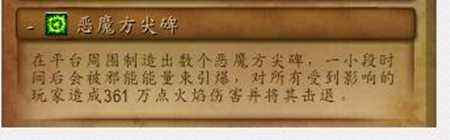 - 恶魔方尖碑
在平台周围制造出数个恶魔方尖碑，一小段时
间后会被邪能能量束引爆，对所有受到影响的
玩家造成361 万点火焰伤害并将其击退。